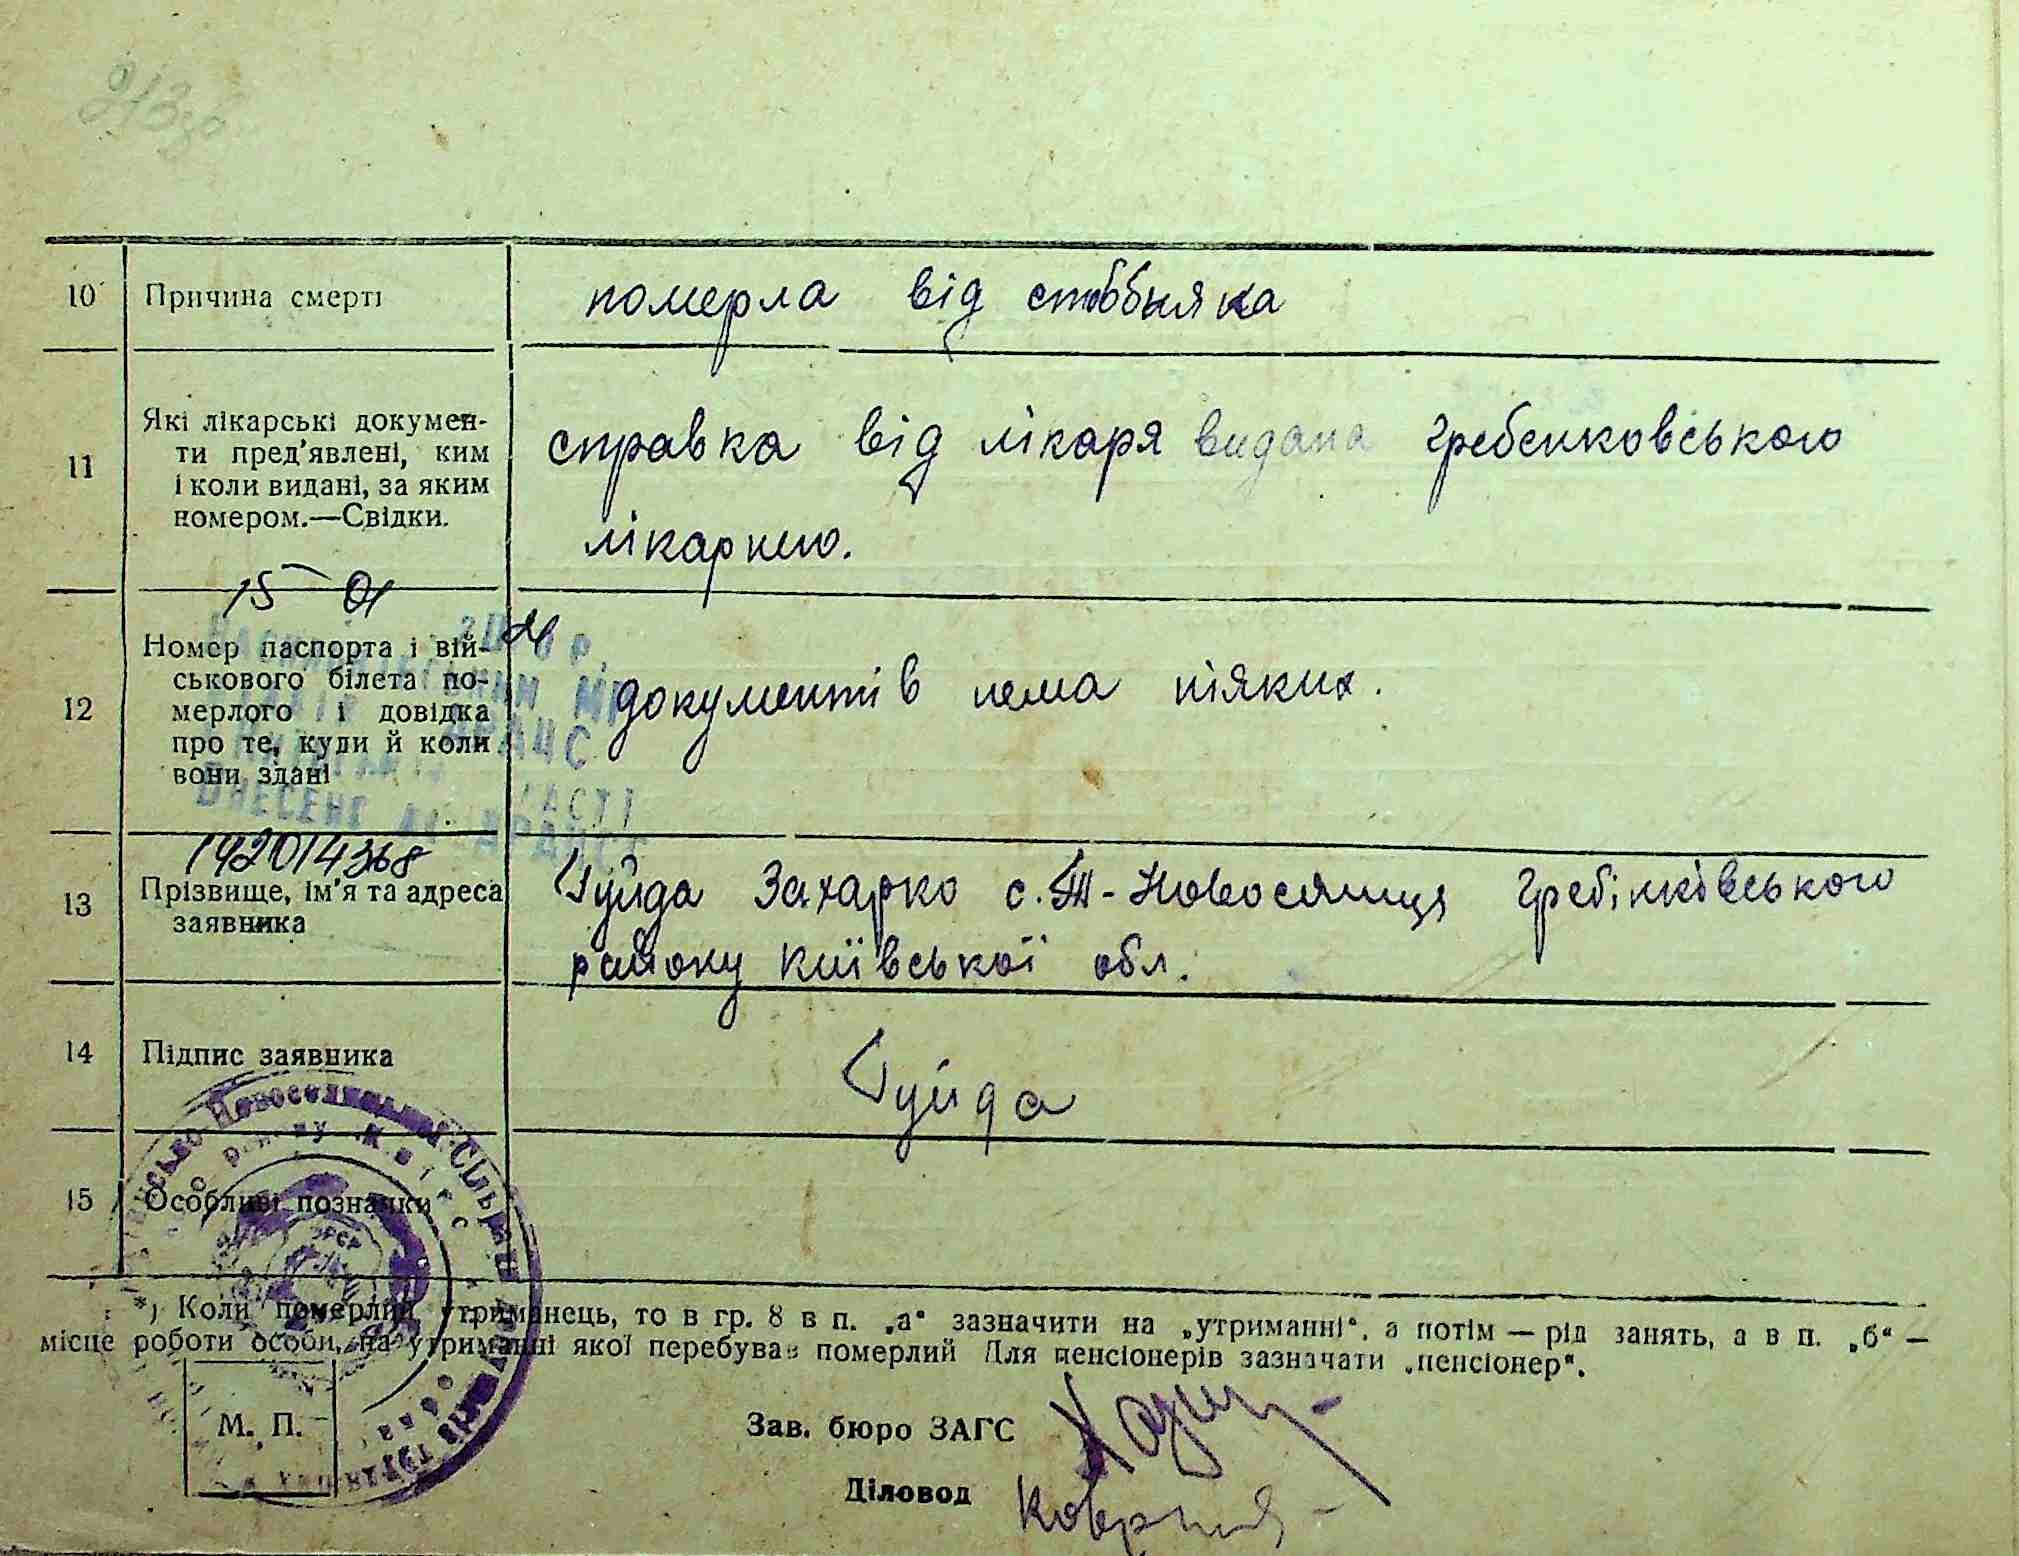 10 Причина смерті померла від стовбняка
11 Які лікарські докумен-
ти пред'явлені, ким
і коли видані, за яким
номером.—Свідки.
справка від лікаря видана Гребенковського
лікарнею.
15 01
12 Номер паспорта і вій-
ськового білета по-
мерлого і довідка
про те, куди й коли
вони здані
документів нема ніяких.
ВНЕСЕНЕ
142014368
13 Прізвище, ім'я та адреса
заявника
Гуйда Захарко с. Новоселиця Гребінківського
району Київської обл.
14 Підпис заявника Гуйда
15 Особливі познаки
*) Коли померлий утриманець, то в гр. 8 в п. „а“ зазначити на „утриманні“, а потім — рід занять, а в п. „б“ —
місце роботи особи, на утриманні якої перебував померлий Для пенсіонерів зазначати „пенсіонер“.
М. П.
Зав. бюро ЗАГС
Діловод